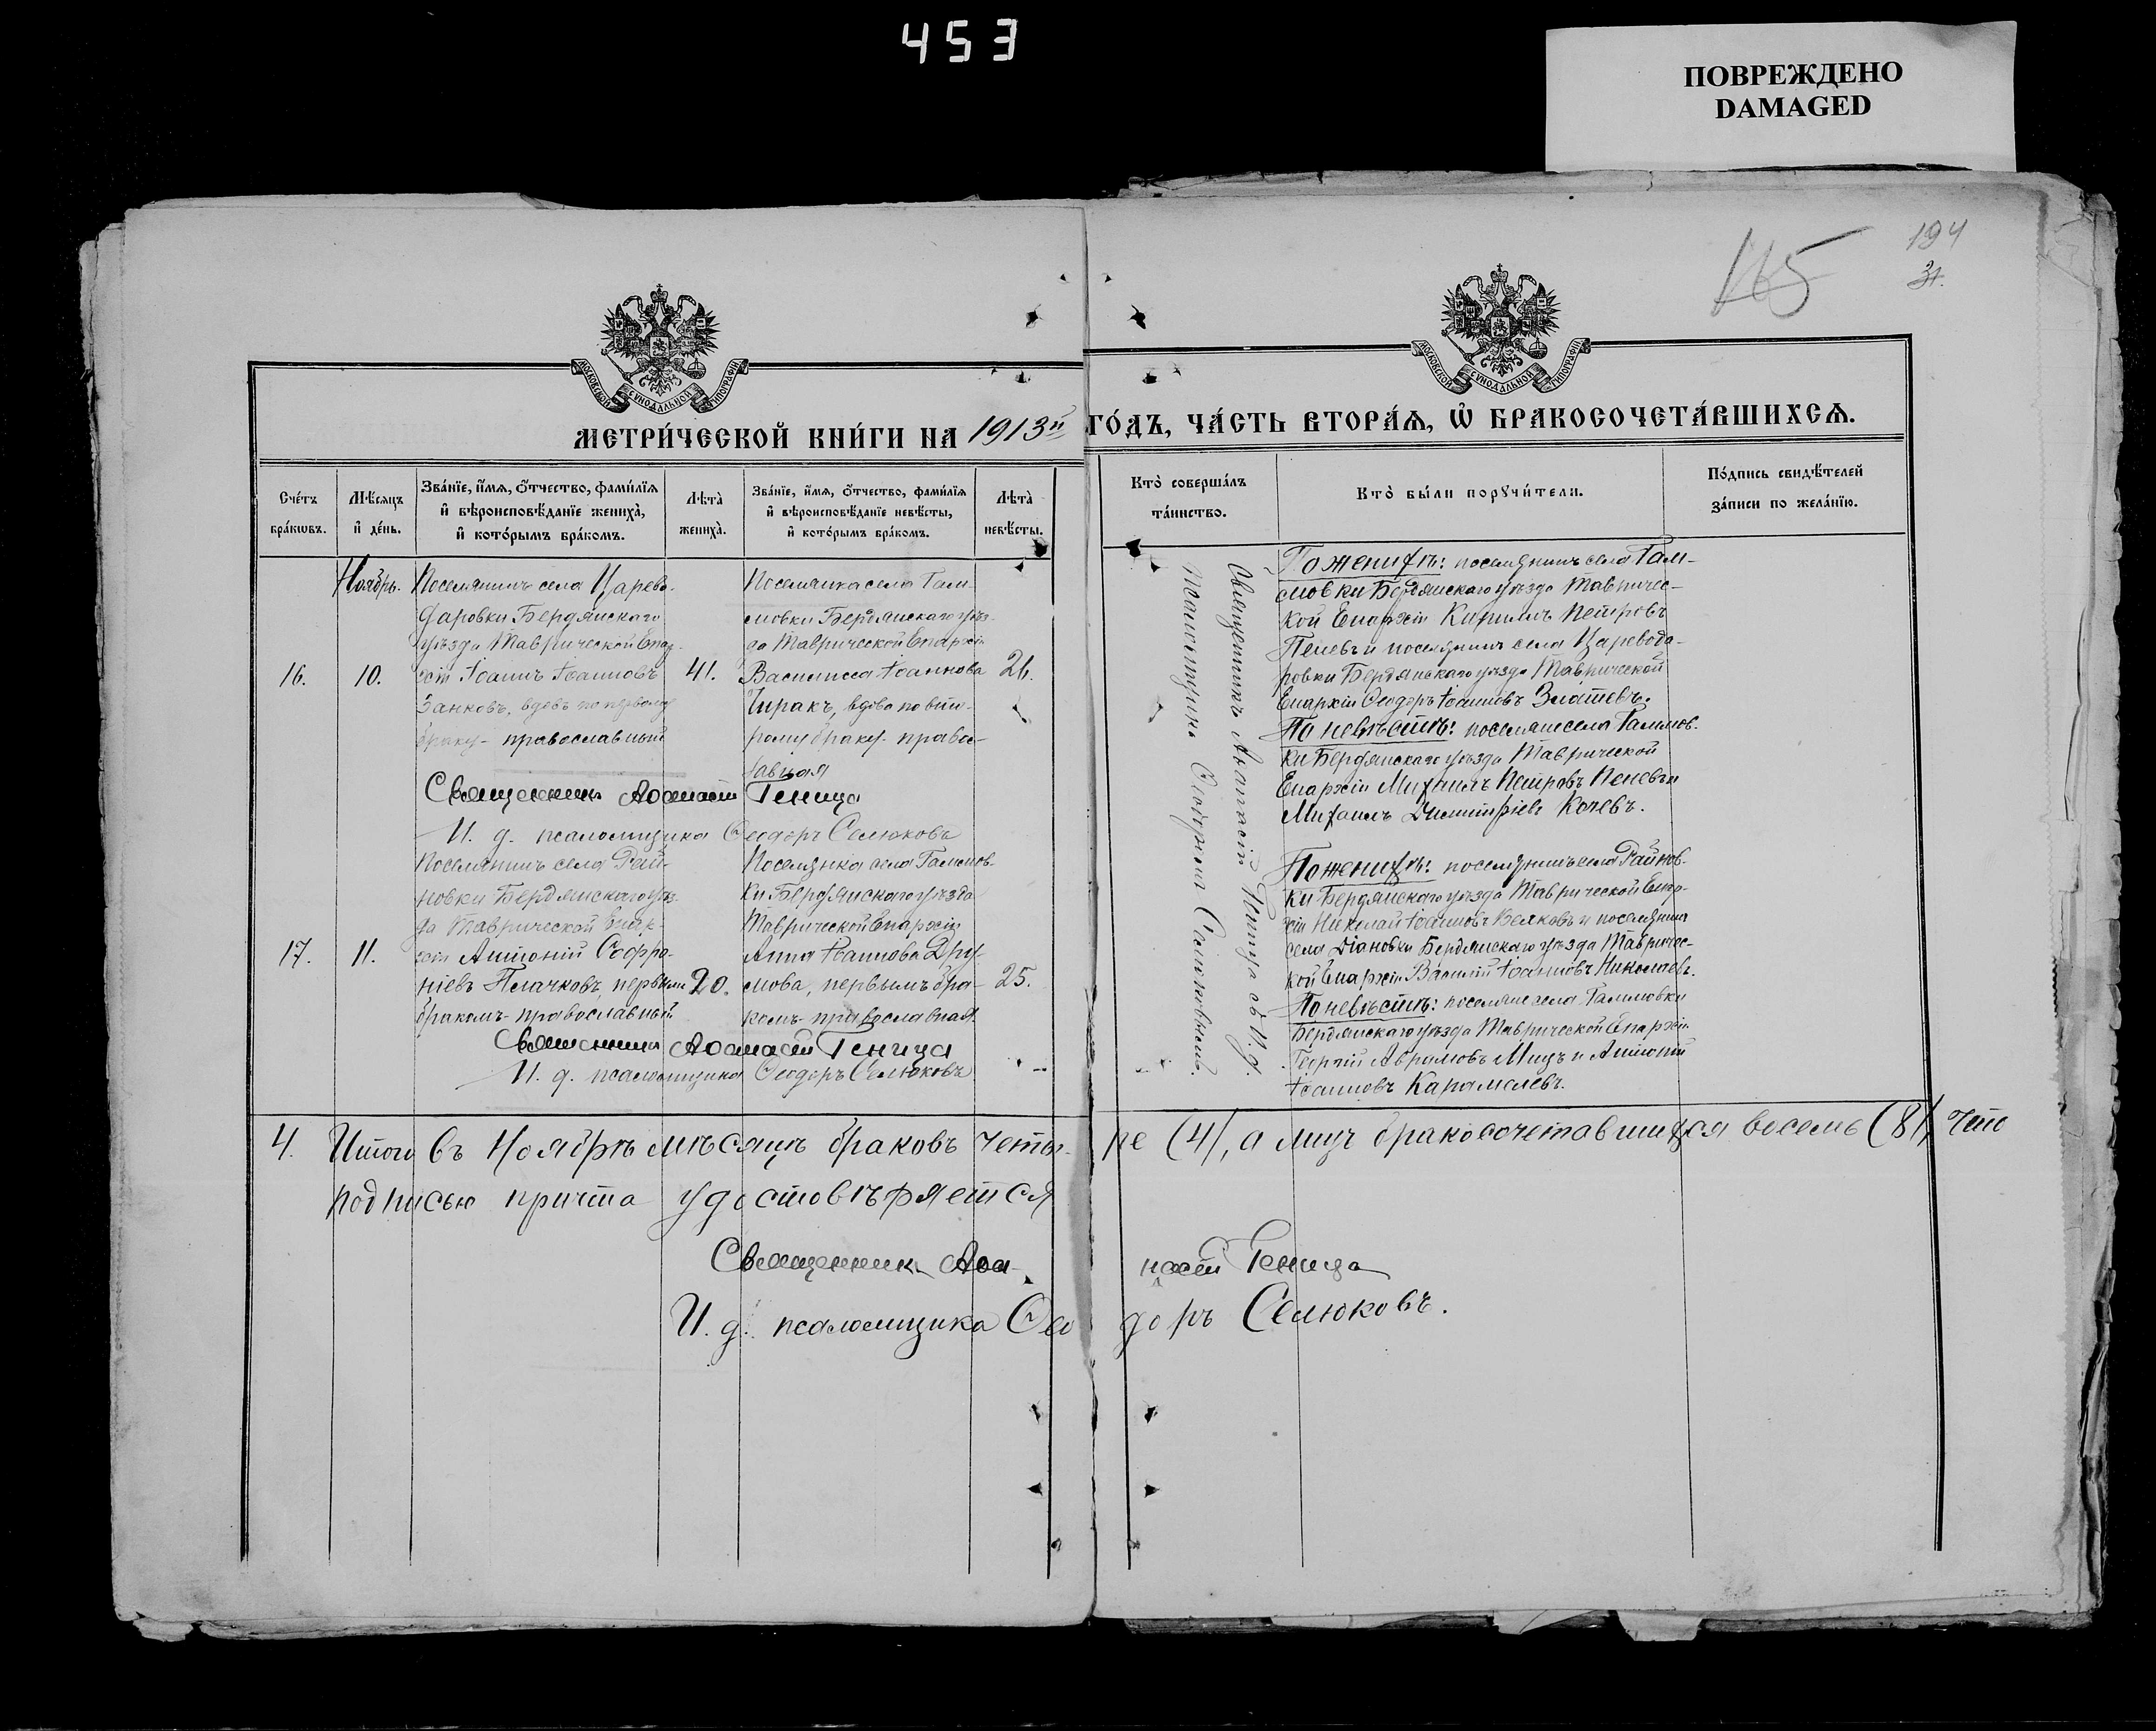 453
ПОВРЕЖДЕНО
DAMAGED
115
194
31.
МОСКОВСКОЙ СѴНОДАЛЬНОЙ ТИПОГРАФІИ
МОСКОВСКОЙ СѴНОДАЛЬНОЙ ТИПОГРАФІИ
МЕТРИ́ЧЕСКОЙ КНИ́ГИ НА 1913й ГО́ДЪ, ЧА́СТЬ ВТОРА́Я, Ѡ҆ БРАКОСОЧЕТА́ВШИХСѦ.
Сче́тъ
бра́кѡвъ.
Мѣ́сѧцъ
и҆ де́нь.
Зва́нїе, и҆́мѧ, ѻ҆́тчество, фами́лїѧ
и҆ вѣроисповѣ́данїе жениха̀,
и҆ кото́рымъ бра́комъ.
Лѣта̀
жениха̀.
Зва́нїе, и҆́мѧ, ѻ҆́тчество, фами́лїѧ
и҆ вѣроисповѣ́данїе невѣ́сты,
и҆ кото́рымъ бра́комъ.
Лѣта̀
невѣ́сты.
Кто̀ соверша́лъ
та́инство.
Кто̀ бы́ли порꙋчи́тели.
По́дпись свидѣ́телей
за́писи по жела́нїю.
Ноябрь.
16.
10.
Поселянинъ села Царево-
даровки Бердянскаго
уѣзда Таврической Епар-
хіи Іоаннъ Іоанновъ
Занковъ, вдовъ по первому
браку - православный
41.
Поселянка села Гам-
мовки Бердянскаго уѣз-
да Таврической Епархіи
Василисса Іоаннова
Чиракъ, вдова по вто-
рому браку - право-
славная
26.
Священникъ Аѳанасій Геница
И. д. псаломщика Ѳеодоръ Селюковъ
Священникъ Аѳанасій Геница съ И. д.
псаломщика Ѳеодоромъ Селюковымъ.
По женихѣ: поселянинъ села Гам-
мовки Бердянскаго уѣзда Тавричес-
кой Епархіи Кириллъ Петровъ
Пеневъ и поселянинъ села Царевода-
ровки Бердянскаго уѣзда Таврической
Епархіи Ѳеодоръ Іоанновъ Златевъ.
По невѣстѣ: поселяне села Гаммов-
ки Бердянскаго уѣзда Таврической
Епархіи Михаилъ Петровъ Пеневъ и
Михаилъ Димитріевъ Кочевъ.
17.
11.
Поселянинъ села Рай-
новки Бердянскаго уѣз-
да Таврической Епар-
хіи Антоній Софро-
ніевъ Плачковъ, первымъ
бракомъ - православный
20.
Поселянка села Гаммов-
ки Бердянскаго уѣзда
Таврической Епархіи
Анна Іоаннова Дру-
мова, первымъ бра-
комъ - православная.
25.
Священникъ Аѳанасій Геница
И. д. псаломщика Ѳеодоръ Селюковъ
По женихѣ: поселянинъ села Райнов-
ки Бердянскаго уѣзда Таврической Епар-
хіи Николай Іоанновъ Велковъ и поселянинъ
села Діановки Бердянскаго уѣзда Тавричес-
кой Епархіи Василій Іоанновъ Николаевъ.
По невѣстѣ: поселяне села Гаммовки
Бердянскаго уѣзда Таврической Епархіи
Георгій Аврамовъ Мицъ и Антоній
Іоанновъ Карамалевъ.
4. Итого въ Ноябрѣ мѣсяцѣ браковъ четы-ре (4), а лицъ бракосочетавшихся восемь (8), что
подписью причта удостовѣряется
Священникъ Аѳанасій Геница
И. д. псаломщика Ѳеодоръ Селюковъ.